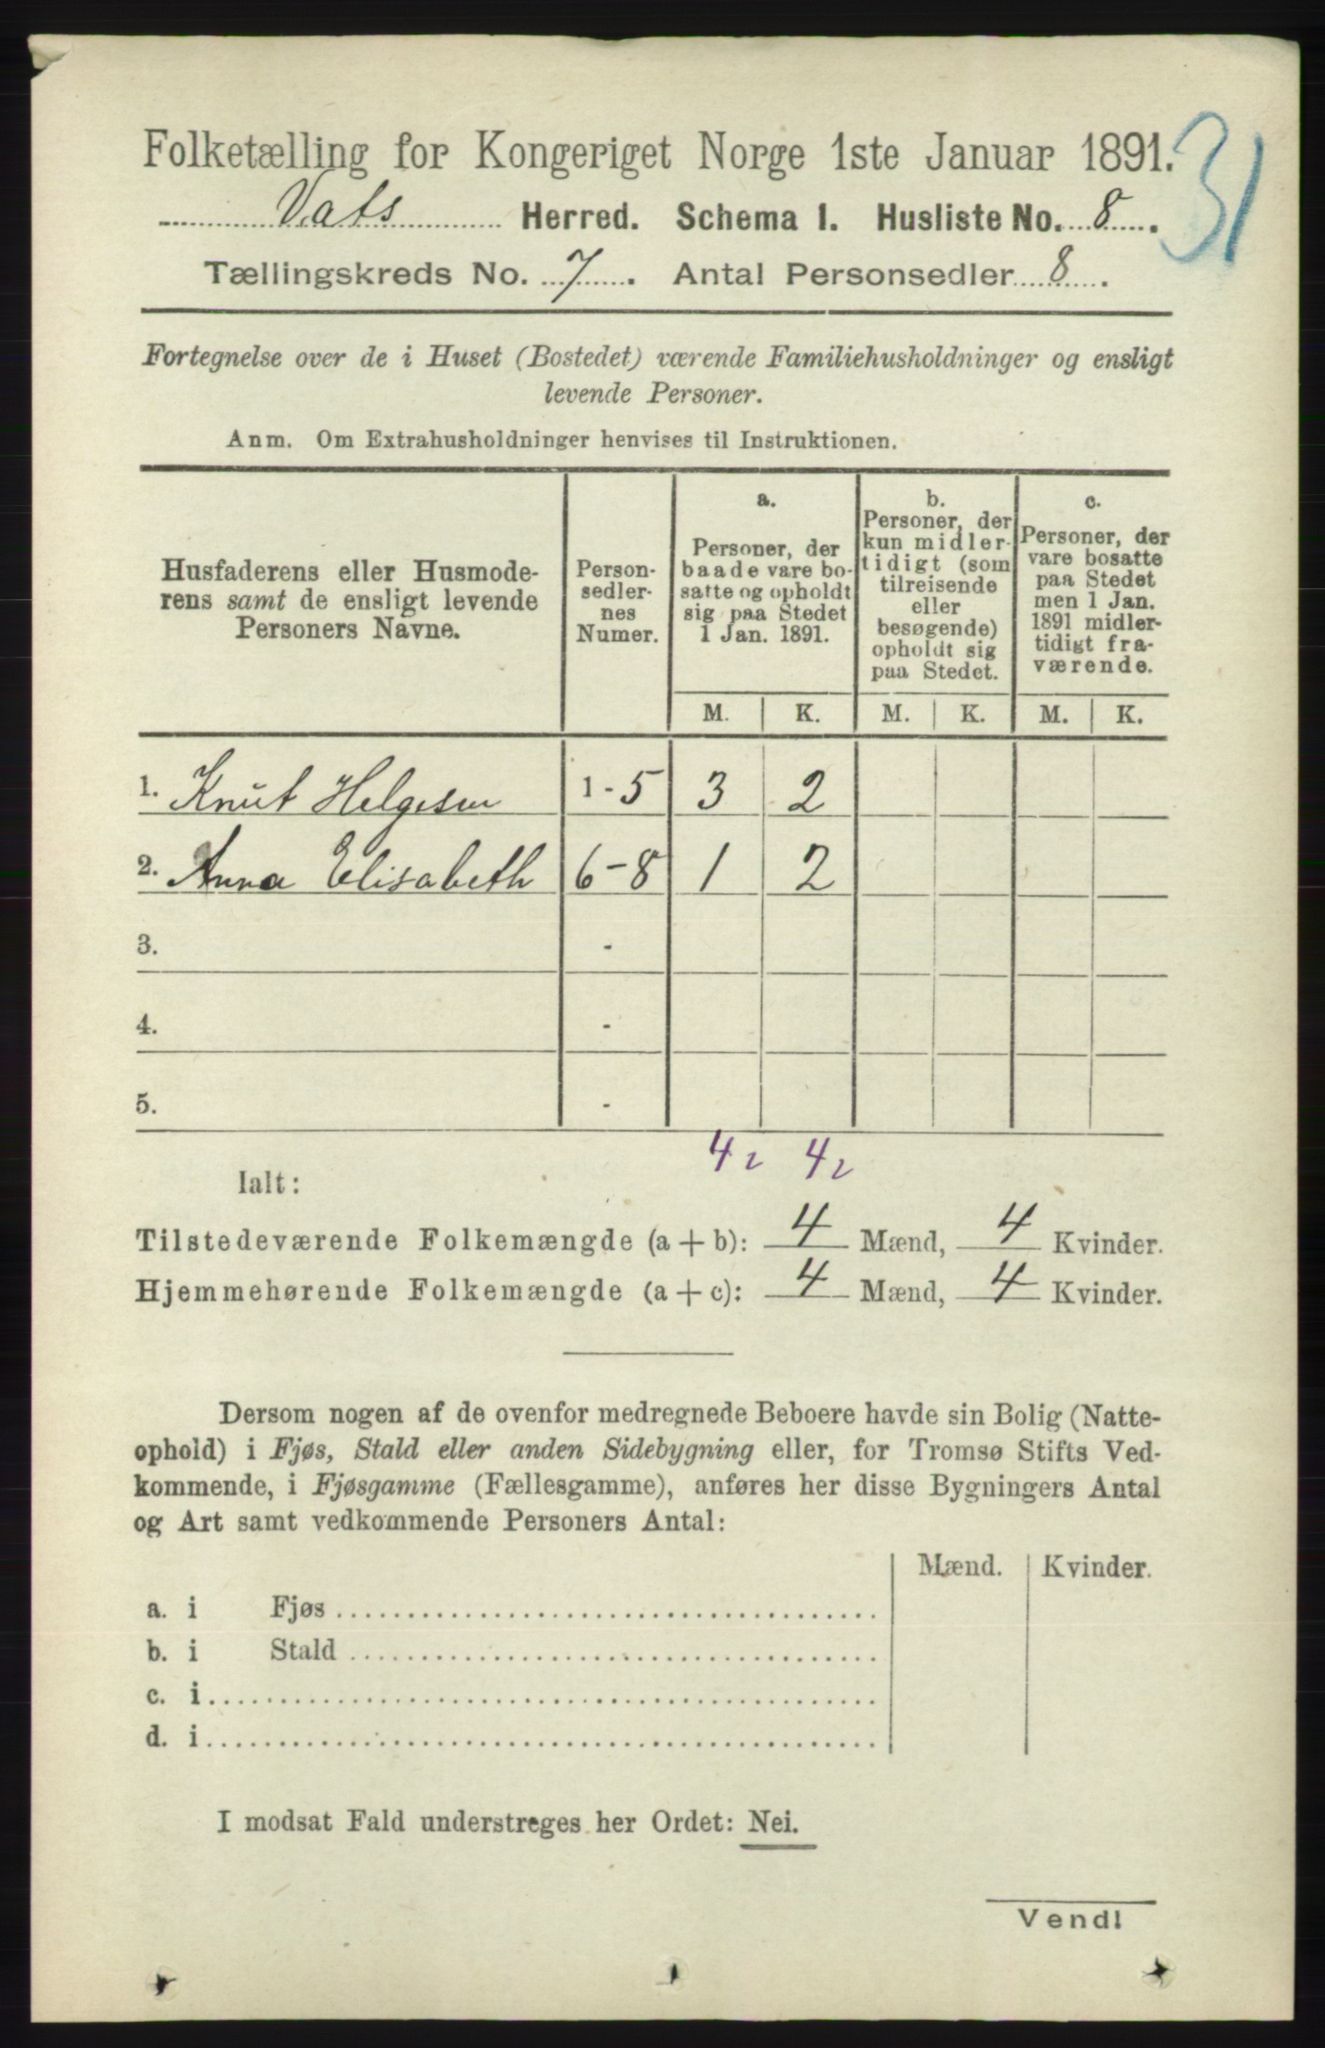 Folketælling for Kongeriget Norge 1ste Januar 1891.
31
Vats Herred. Schema 1. Husliste No. 8.
Tællingskreds No. 7. Antal Personsedler 8.
Fortegnelse over de i Huset (Bostedet) værende Familiehusholdninger og ensligt
levende Personer.
Anm. Om Extrahusholdninger henvises til Instruktionen.
Husfaderens eller Husmode-
rens samt de ensligt levende
Personers Navne.
Person-
sedler-
nes
Numer.
a.
Personer, der
baade vare bo-
satte og opholdt
sig paa Stedet
1 Jan. 1891.
b.
Personer, der
kun midler-
tidigt (som
tilreisende
eller
besøgende)
opholdt sig
paa Stedet.
c.
Personer, der
vare bosatte
paa Stedet
men 1 Jan.
1891 midler-
tidigt fra-
værende.
M. K. M. K. M. K.
1. Knut Helgesen 1-5 3 2
2. Anna Elisabeth 6-8 1 2
3. -
4. -
5. -
4 2 4 2
Ialt:
Tilstedeværende Folkemængde (a + b): 4 Mænd, 4 Kvinder.
Hjemmehørende Folkemængde (a + c): 4 Mænd, 4 Kvinder.
Dersom nogen af de ovenfor medregnede Beboere havde sin Bolig (Natte-
ophold) i Fjøs, Stald eller anden Sidebygning eller, for Tromsø Stifts Ved-
kommende, i Fjøsgamme (Fællesgamme), anføres her disse Bygningers Antal
og Art samt vedkommende Personers Antal:
Mænd. Kvinder.
a. i Fjøs
b. i Stald
c. i
d. i
I modsat Fald understreges her Ordet: Nei.
Vend!